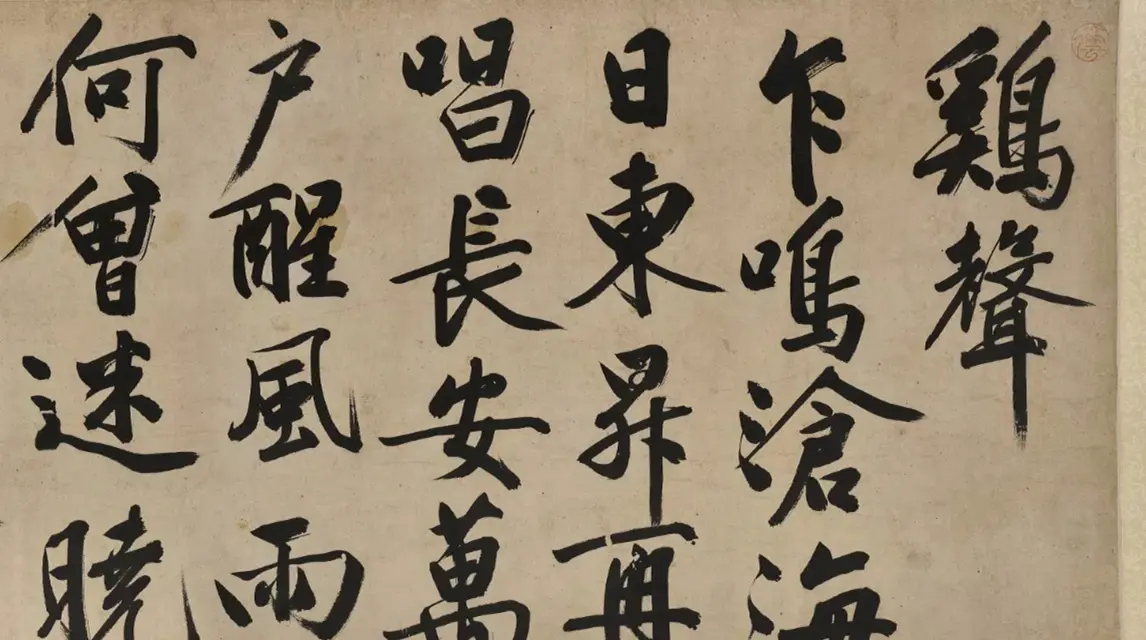 鷄聲
乍鳴滄海
日東昇再
唱長安萬
户醒風雨
何曾迷曉